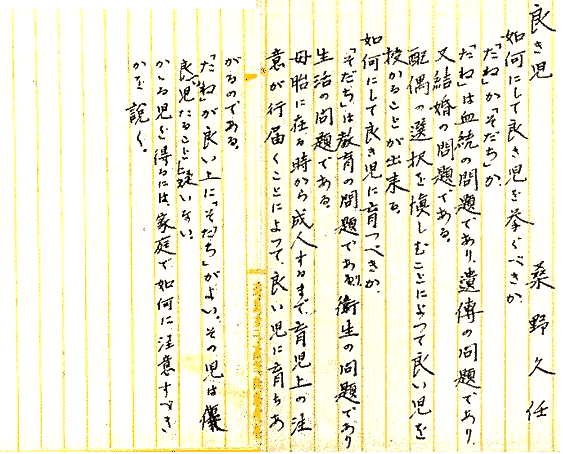 良き児　　　桑野久任
如何にして良き児を挙ぐべきか、
「だね」か「そだち」か、
「だね」は血統の問題であり、遺傳の問題であり、
又結婚の問題である。
配偶の選択を慎しむことによって良い児を
授かることが出来る。
如何にして良き児に育つべきか
「そだち」は教育の問題であり、衛生の問題であり
生活の問題である。
母胎に在る時から成人するまで、育児上の注
意が行届くことによって、良い児に育ちあ
がるのである。
「だね」が良い上に「そだち」がよい、その児は
良い児たること疑いない。
かゝる児を得るには家庭で如何に注意すべき
かを説く。